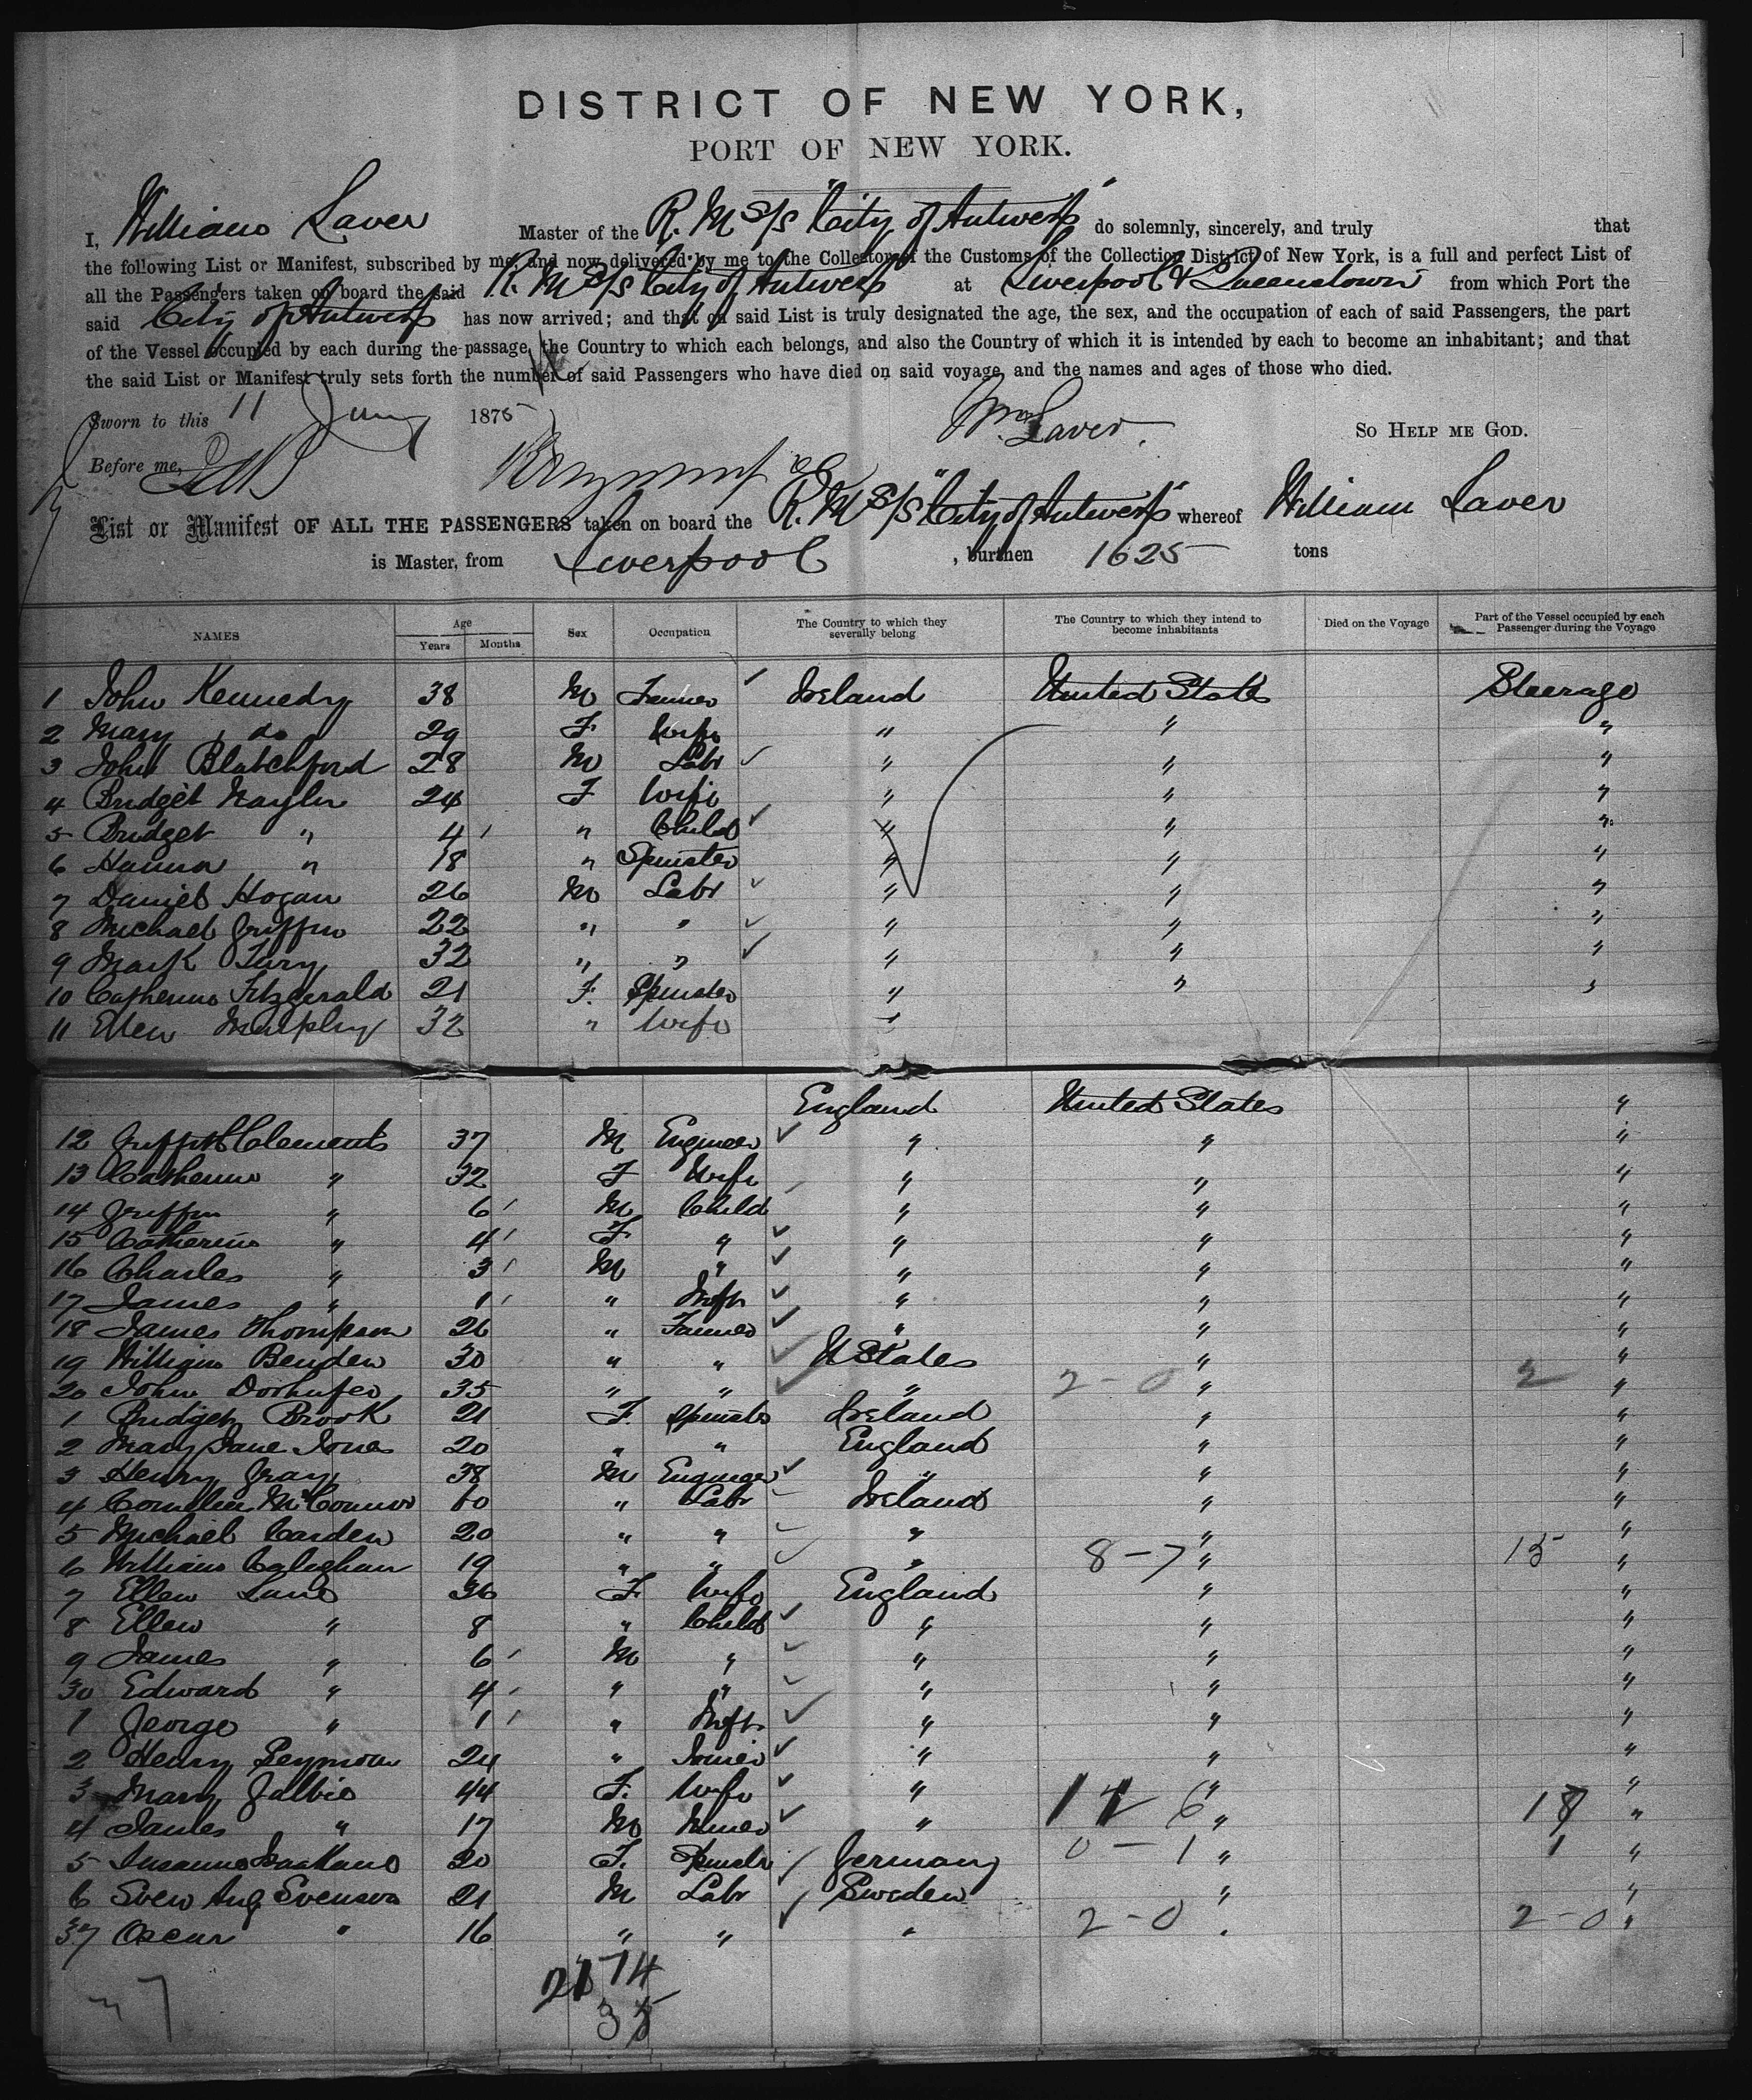 DISTRICT OF NEW YORK,
PORT OF NEW YORK.
I, William Laver Master of the R. M S/S "City of Antwerp" do solemnly, sincerely, and truly that
the following List or Manifest, subscribed by me, and now delivered by me to the Collector of the Customs of the Collection District of New York, is a full and perfect List of
all the Passengers taken on board the said R. M S/S City of Antwerp at Liverpool & Queenstown from which Port the
said City of Antwerp has now arrived; and that on said List is truly designated the age, the sex, and the occupation of each of said Passengers, the part
of the Vessel occupied by each during the passage, the Country to which each belongs, and also the Country of which it is intended by each to become an inhabitant; and that
the said List or Manifest truly sets forth the number of said Passengers who have died on said voyage, and the names and ages of those who died.
Sworn to this 11 1875 Wm. Laver. SO HELP ME GOD.
Before me,
List or Manifest OF ALL THE PASSENGERS taken on board the R. M S/S "City of Antwerp" whereof William Laver
is Master, from Liverpool, burthen 1625 tons
NAMES Age Years Months Sex Occupation The Country to which they severally belong The Country to which they intend to become inhabitants Died on the Voyage Part of the Vessel occupied by each Passenger during the Voyage
1 John Kennedy 38 M Farmer Ireland United States Steerage
2 Mary do 29 F Wife " " "
3 John Blatchford 28 M Labr " " "
4 Bridget Naylor 24 F Wife " " "
5 Bridget " 4 " Child " " "
6 Hanna " 18 " Spinster " " "
7 Daniel Hogan 26 M Labr " " "
8 Michael Griffin 22 " " " " "
9 Mark Fury 32 " " " " "
10 Catherine Fitzgerald 21 F. Spinster " " "
11 Ellen Murphy 32 " Wife "
England United States "
12 Griffith Clements 37 M Engineer " " "
13 Catherine " 32 F Wife " " "
14 Griffin " 6 M Child " " "
15 Catherine " 4 F " " " "
16 Charles " 3 M " " " "
17 James " 1 " Inft " " "
18 James Thompson 26 " Farmer " " "
19 William Benden 30 " " U States " "
20 John 35 " " " 2-0 " 2 "
1 Bridget Brook 21 F. Spinster Ireland " "
2 Mary Jane Jones 20 " " England " "
3 Henry Gray 38 M Engineer " " "
4 Cornelius McConnor 60 " Labr Ireland " "
5 Michael Carden 20 " " " " "
6 William Calighan 19 " " " 8-7 " 15 "
7 Ellen Lane 36 F Wife England " "
8 Ellen " 8 " Child " " "
9 James " 6 M " " " "
30 Edward " 4 " " " " "
1 George " 1 " Inft " " "
2 Henry Seymour 24 " Joiner " " "
3 Mary Galbie 44 F. Wife " " "
4 James " 17 M Miner " 6 " 18 "
5 20 F. Spinster Germany 0-1 " 1 "
6 Sven Aug Svenson 21 M Labr Sweden " "
37 Oscar " 16 " " " 2-0 " 2-0 "